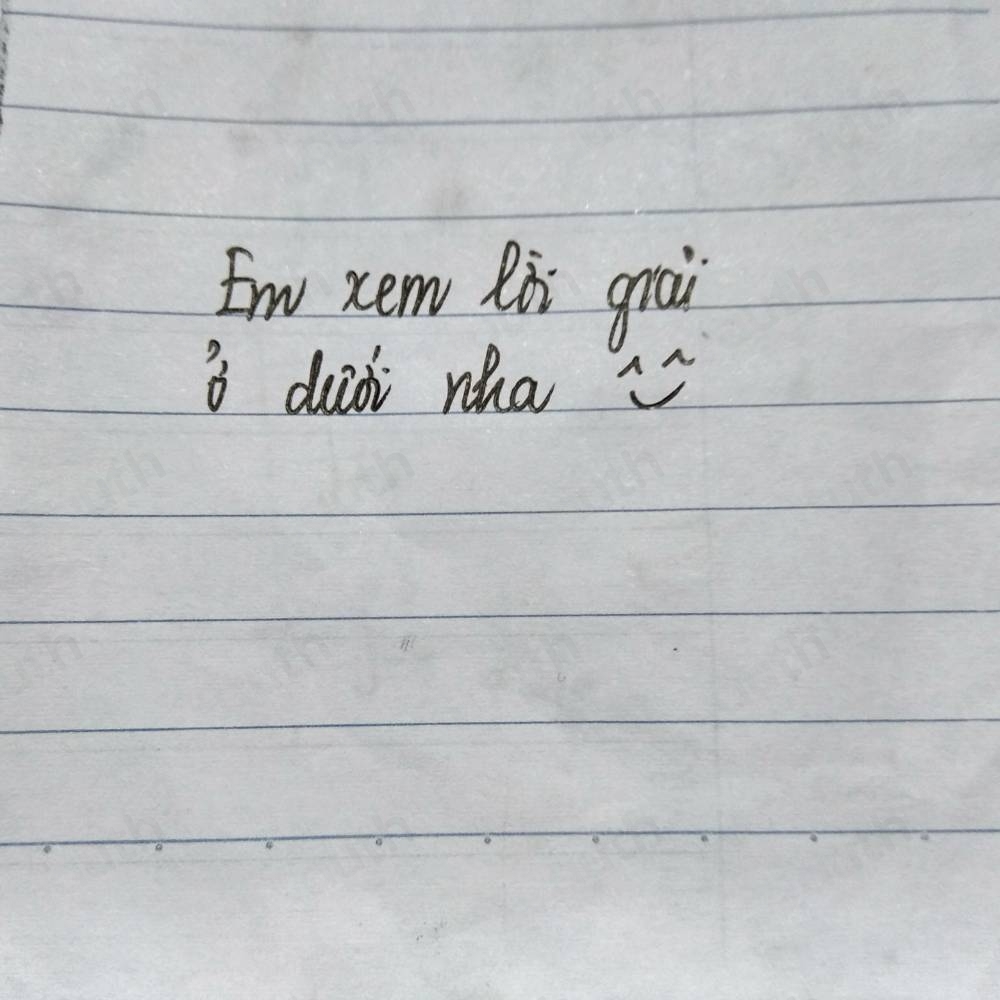 Em xem lời giải
ở dưới nha ^‿^